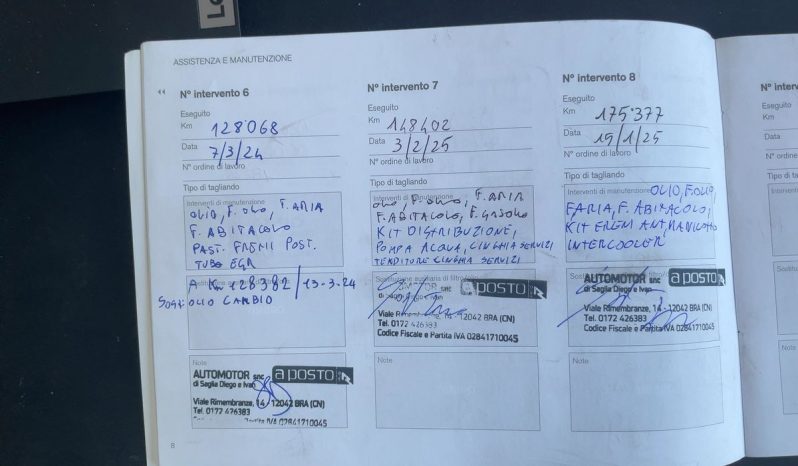 ASSISTENZA E MANUTENZIONE
N° intervento 6
Eseguito
Km 128'068
Data 7/3/24
N° ordine di lavoro
Tipo di tagliando
Interventi di manutenzione
OLIO, F. OLIO, F. ARIA
F. ABITACOLO
PAST. FRENI POST.
TUBO EGR
A K 128382 / 13-3-24
SOST. OLIO CAMBIO
Note
AUTOMOTOR snc a POSTO
di Seglia Diego e Ivan
Viale Rimembranze, 14 - 12042 BRA (CN)
Tel. 0172 426383
Partita IVA 02841710045
8
N° intervento 7
Eseguito
Km 148402
Data 3/2/25
N° ordine di lavoro
Tipo di tagliando
Interventi di manutenzione
OLIO, F. OLIO, F. ARIA
F. ABITACOLO, F. GASOLIO
KIT DISTRIBUZIONE,
POMPA ACQUA, CINGHIA SERVIZI
TENDITORE CINGHIA SERVIZI
Sostituzione
snc a POSTO
Viale Rimembranze, 14 - 12042 BRA (CN)
Tel. 0172 426383
Codice Fiscale e Partita IVA 02841710045
Note
N° intervento 8
Eseguito
Km 175'377
Data 19/1/25
N° ordine di lavoro
Tipo di tagliando
Interventi di manutenzione OLIO, F.OLIO,
F.ARIA, F. ABITACOLO,
KIT FRENI ANT, MANICOTTO
INTERCOOLER
AUTOMOTOR snc a POSTO
di Seglia Diego e Ivan
Viale Rimembranze, 14 - 12042 BRA (CN)
Tel. 0172 426383
Codice Fiscale e Partita IVA 02841710045
Note
N° interv
Eseguito
Km
Data
N° ordine
Tipo di ta